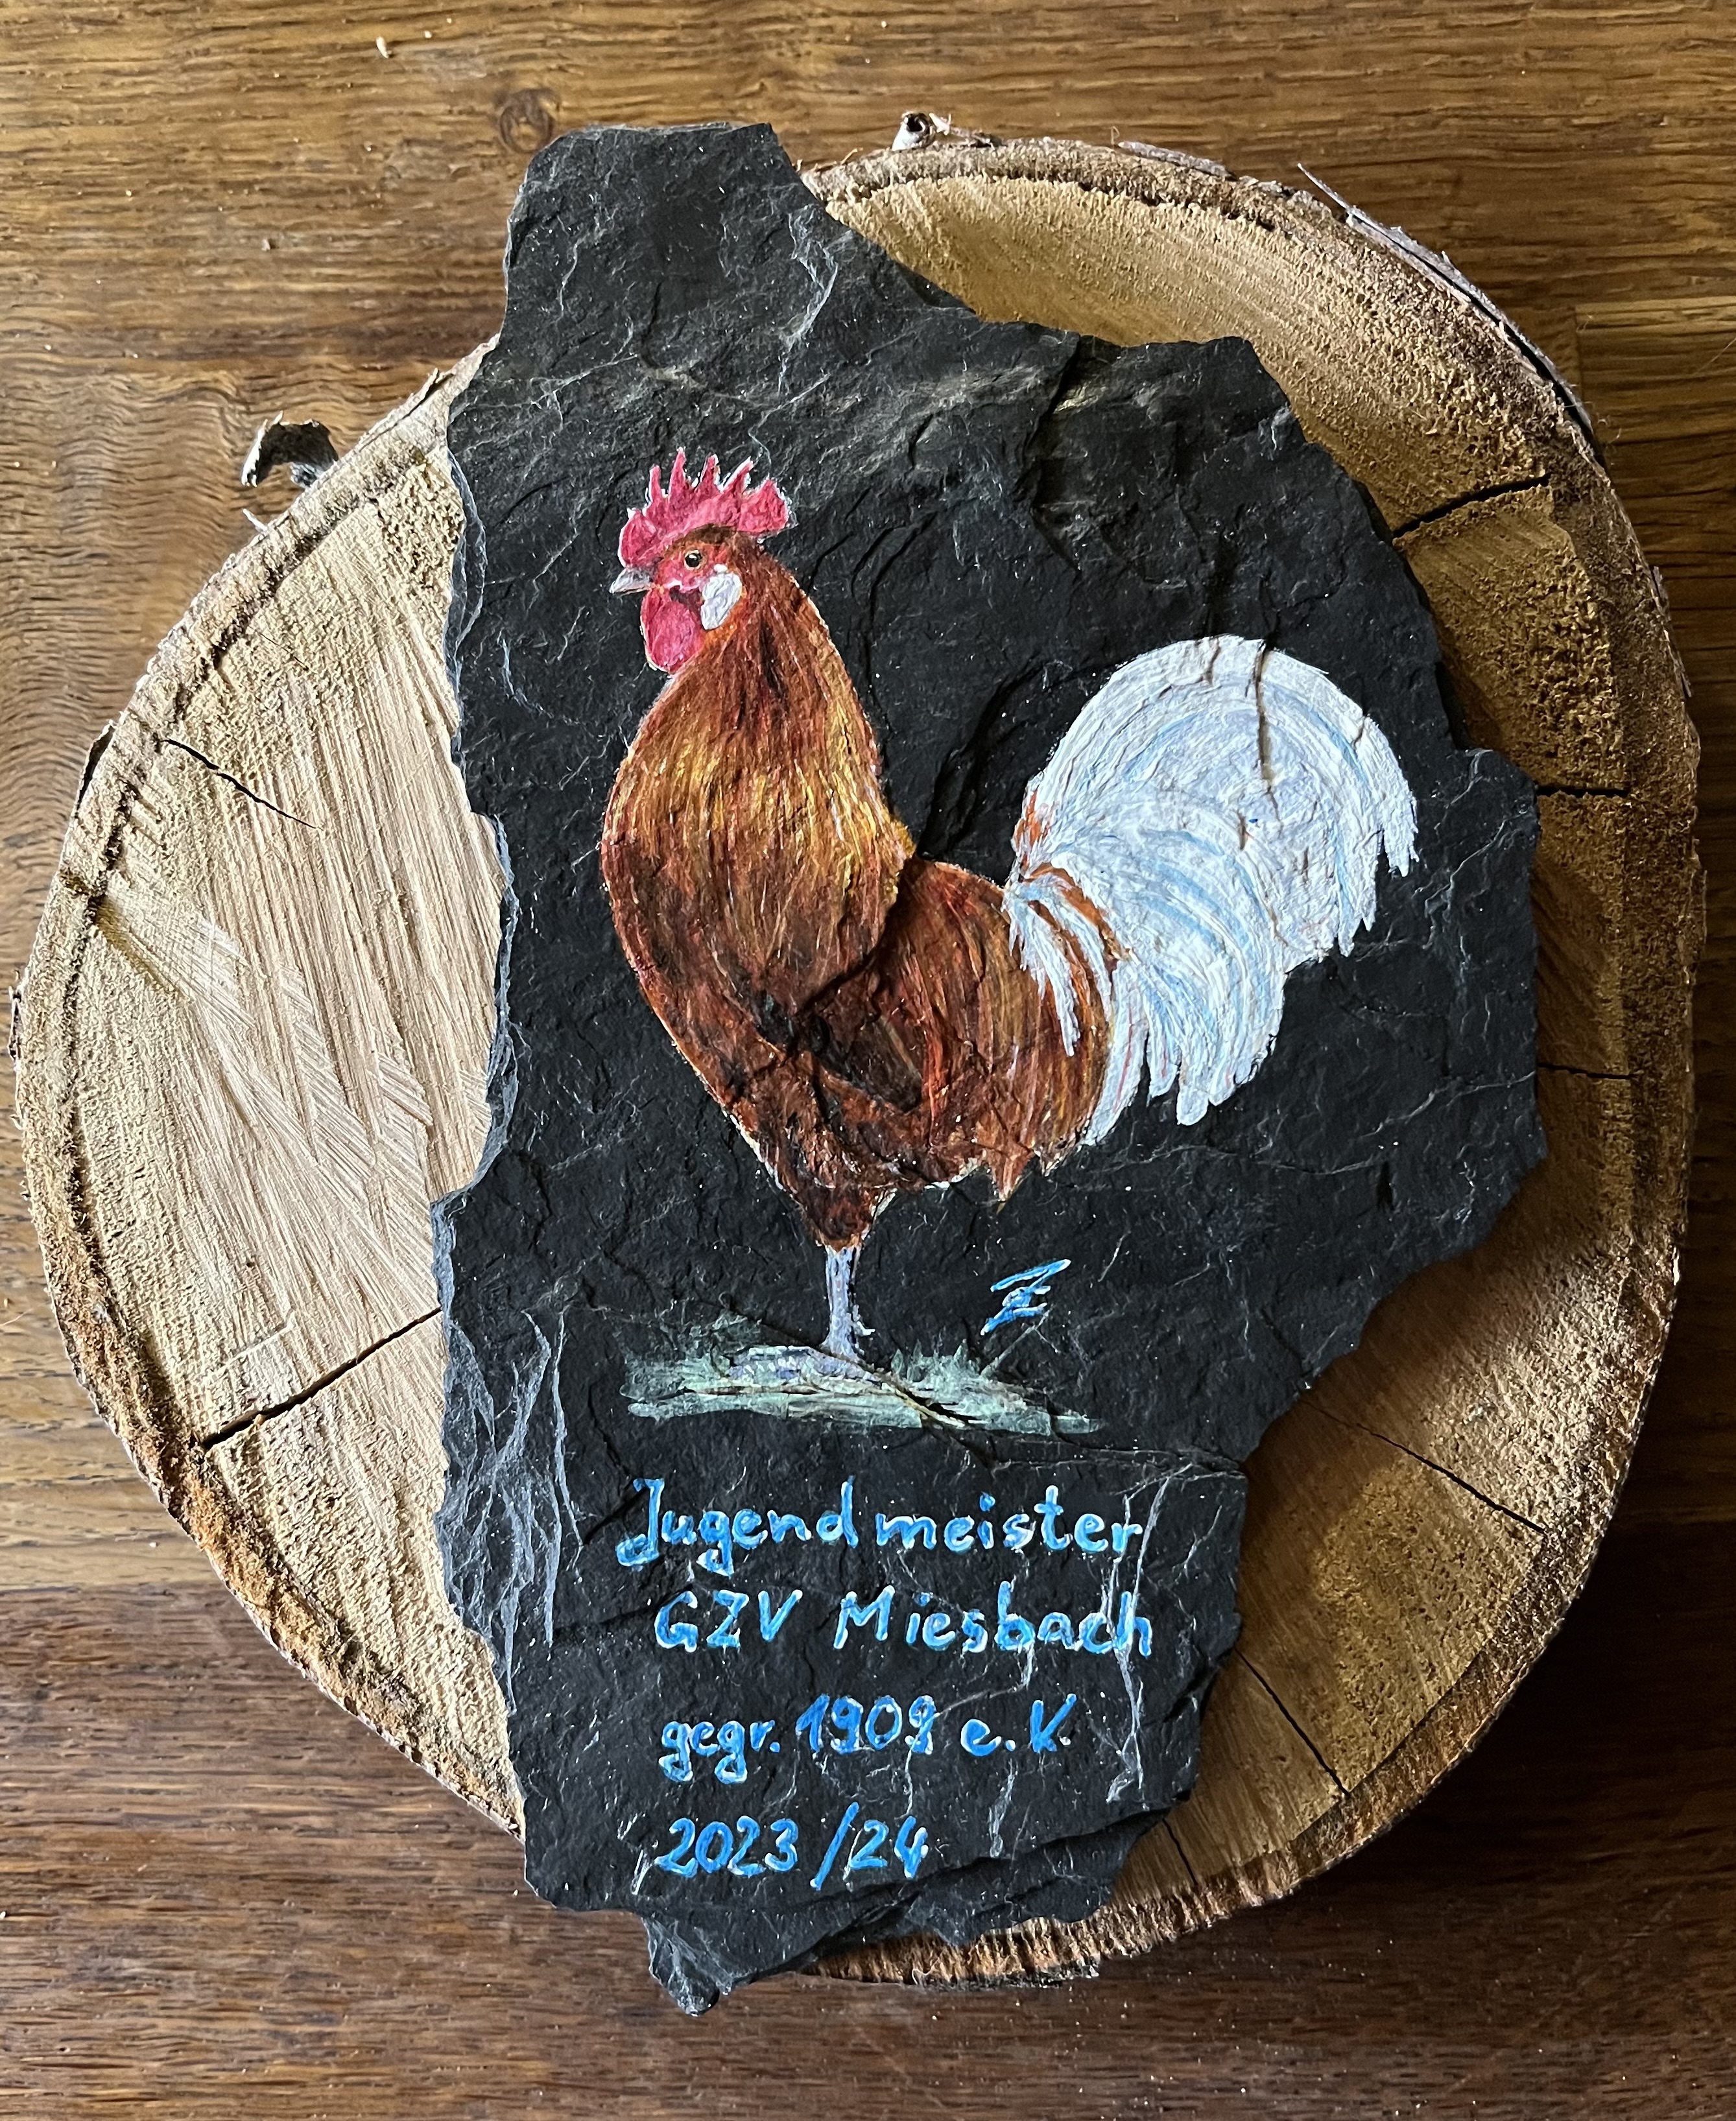 Z
Jugendmeister
GZV Miesbach
gegr. 1909 e.V.
2023/24